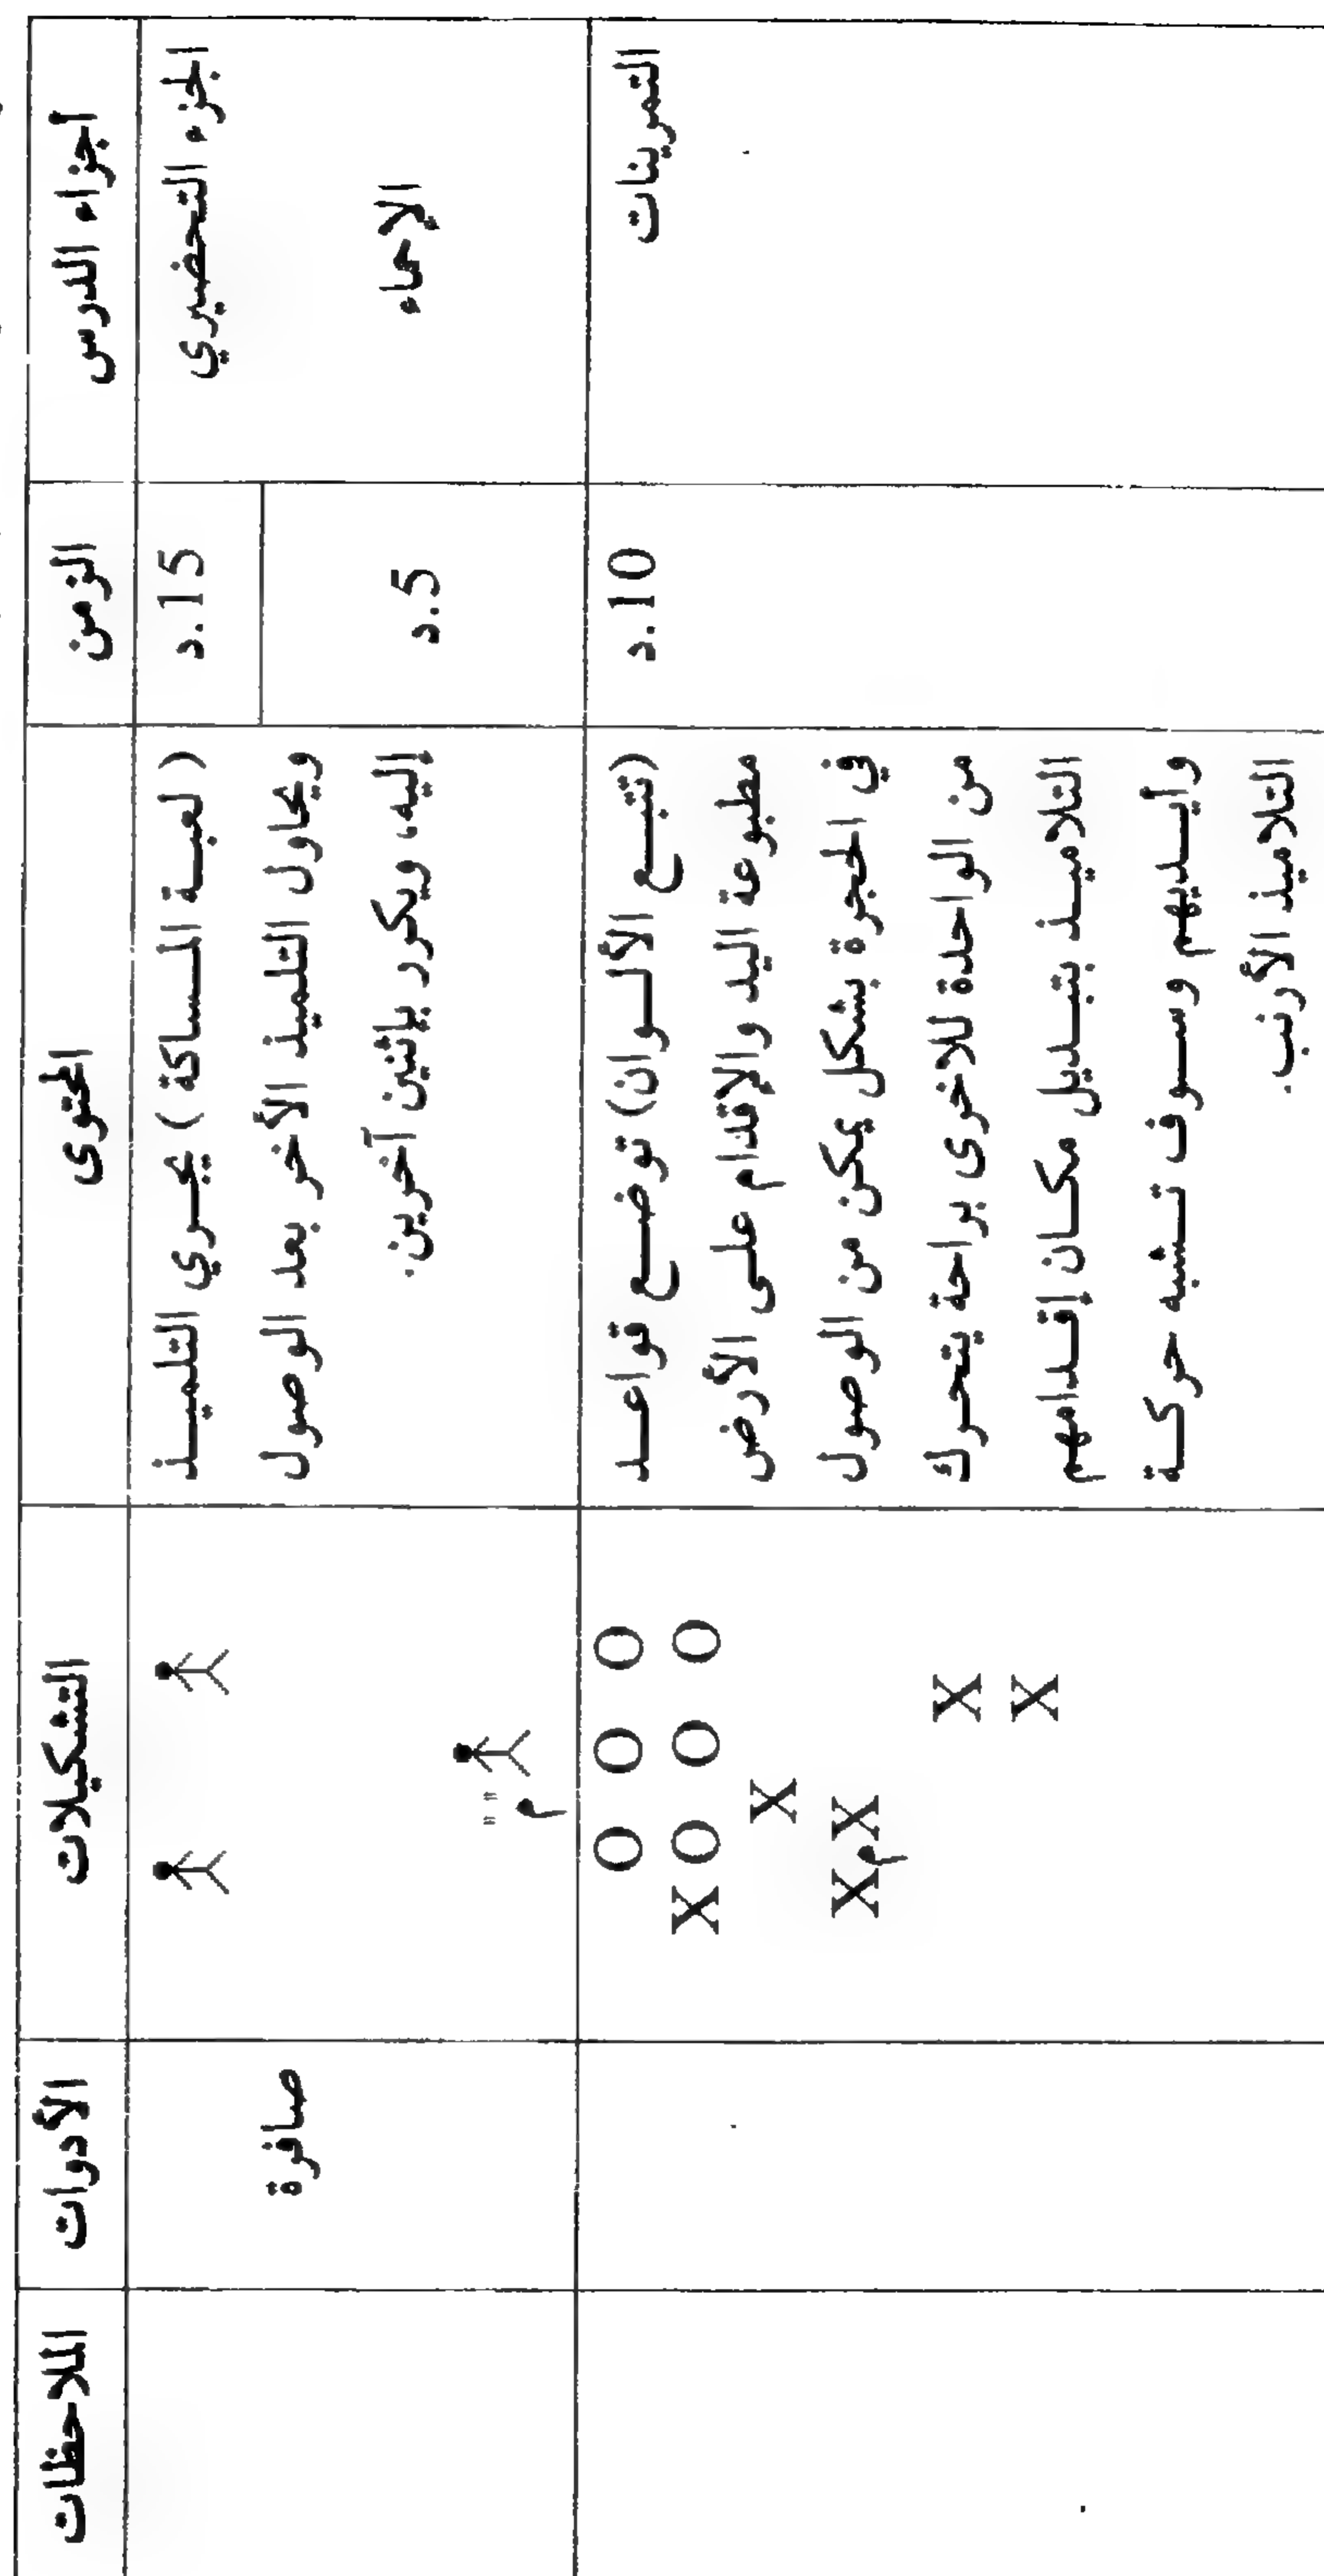 أجزاء الدرس
الزمن
المحتوى
التشكيلات
الأدوات
الملاحظات
الجزء التحضيري
الإحماء
15.د
5.د
( لعبة المساكة ) يجري التلميذ
ويحاول التلميذ الأخر بعد الوصول
إليه، ويكرر بإثنين آخرين.
م
صافرة
التمرينات
10.د
(تتبع الألوان) توضع قواعد
مطبوعة اليد والإقدام على الأرض
في الحجرة بشكل يمكن من الوصول
من الواحدة للاخرى براحة يتحرك
التلاميذ بتبديل مكان إقدامهم
وأيديهم وسوف تشبه حركة
التلاميذ الأرنب.
O O O
X O O O
X
X م X
X
X